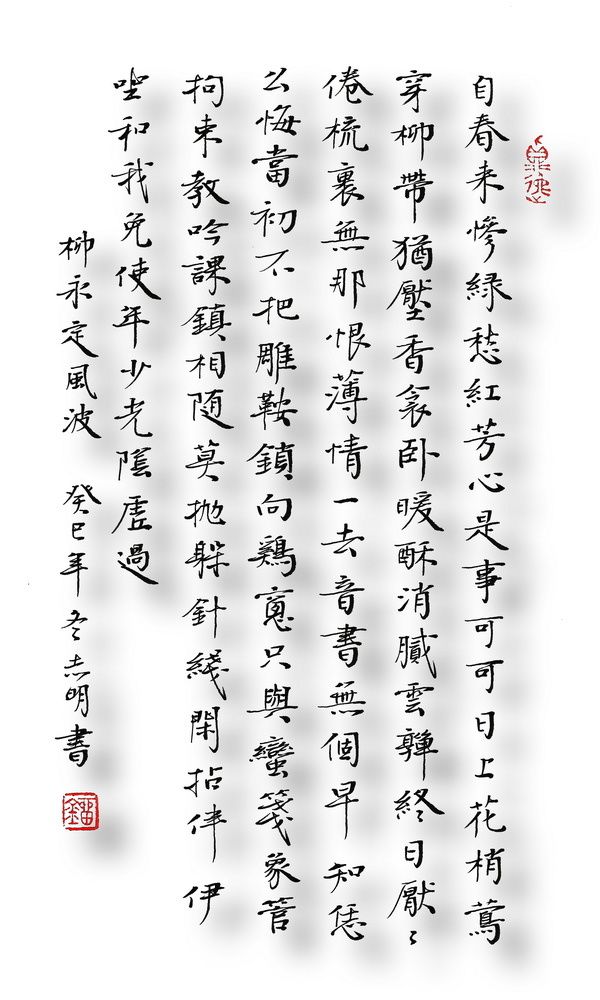 自春来慘緑愁紅芳心是事可可日上花梢鶯
穿柳帶猶壓香衾卧暖酥消膩雲嚲終日厭〻
倦梳裹無那恨薄情一去音書無個早知恁
么悔當初不把雕鞍鎖向鷄窻只與蠻箋象管
拘束教吟課鎮相随莫抛躲針綫閑拈伴伊
坐和我免使年少光陰虛過
柳永定風波 癸巳年冬志明書